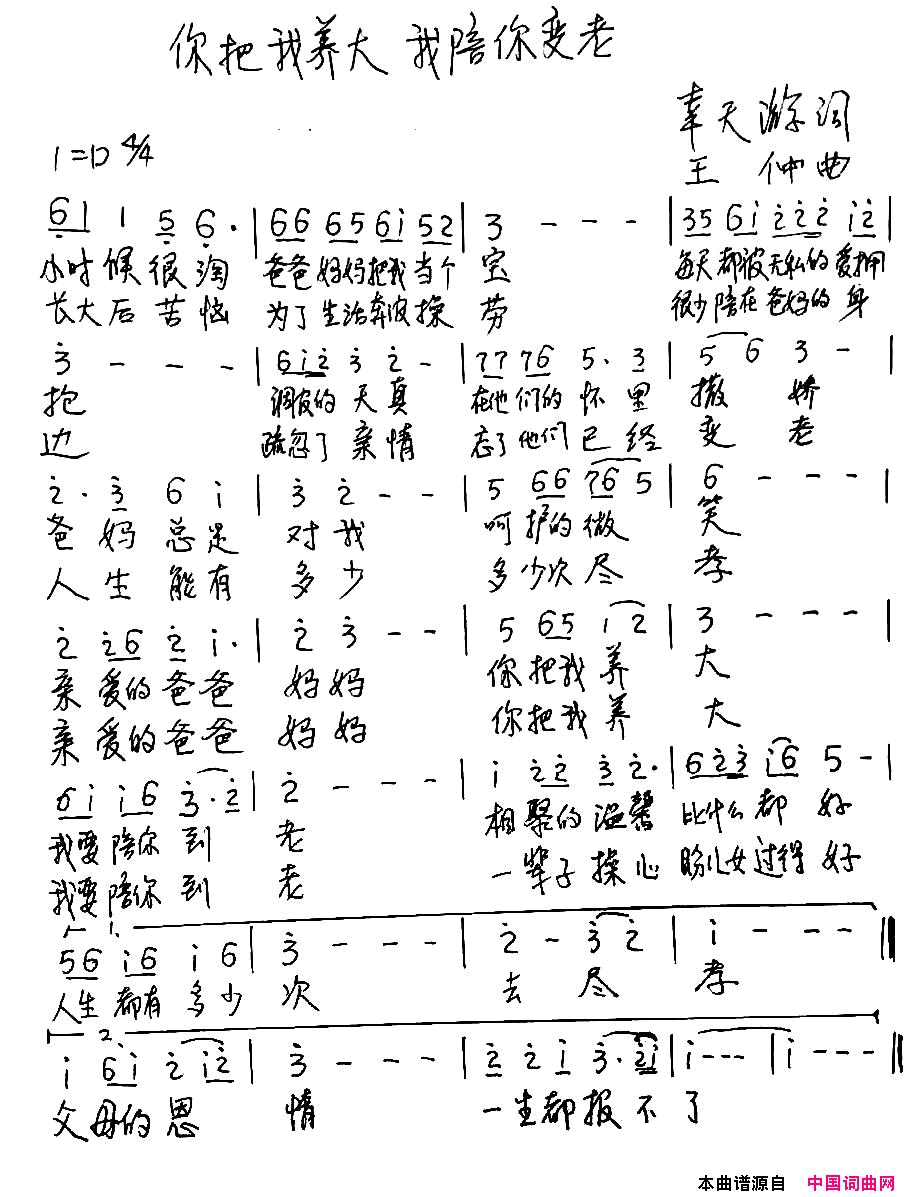 你把我养大 我陪你变老
幸天游词
1=D 4/4
王 仲曲
6 1 1 5 6· | 66 65 6i 52 | 3 - - - | 35 6i 222 i2 |
小时候很淘 爸爸妈妈把我当个 宝 每天都被无私的爱拥
长大后苦恼 为了生活奔波操 劳 很少陪在爸妈的身
3 - - - | 6i2 3 2 - | 77 76 5· 3 | 5 6 3 - |
抱 调皮的天真 在他们的怀里 撒娇
边 疏忽了亲情 忘了他们已经 变老
2· 3 6 i | 3 2 - - | 5 66 76 5 | 6 - - - |
爸妈总是 对我 呵护的微 笑
人生能有 多少 多少次尽 孝
2 26 2 i· | 2 3 - - | 5 65 i2 | 3 - - - |
亲爱的爸爸 妈妈 你把我养 大
亲爱的爸爸 妈妈 你把我养 大
6i i6 3·2 | 2 - - - | i 22 3 2· | 623 i6 5 - |
我要陪你到 老 相聚的温馨 比什么都好
我要陪你到 老 一辈子操心 盼儿女过得好
1.
56 i6 i 6 | 3 - - - | 2 - 3 2 | i - - - ‖
人生都有多少 次 去 尽 孝
2.
i 6i 2 i2 | 3 - - - | 2 2 i 3·2i | i - - - | i - - - ‖
父母的恩 情 一生都报不了
本曲谱源自 中国词曲网